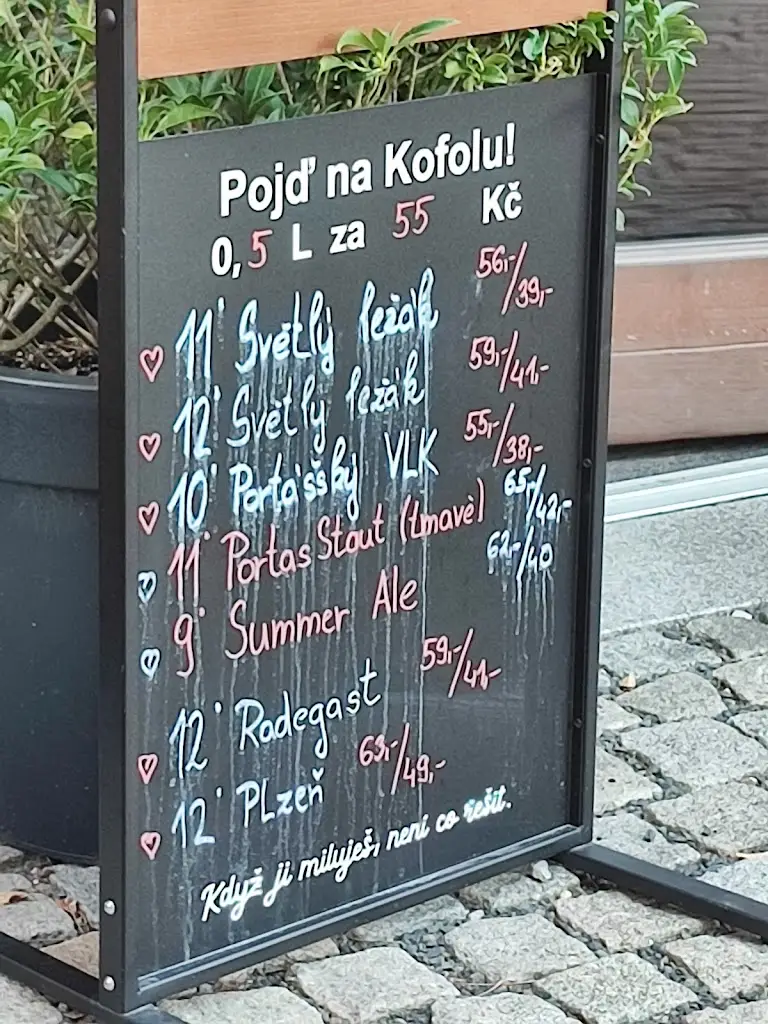 Pojď na Kofolu!
0,5 L za 55 Kč
11° Světlý ležák 56,-/39,-
12° Světlý ležák 59,-/41,-
10° Portášský VLK 55,-/38,-
11° Portas Stout (tmavé) 65,-/42,-
9° Summer Ale 62,-/40
12° Radegast 59,-/41,-
12° PLzeň 63,-/49,-
Když ji miluješ, není co řešit.